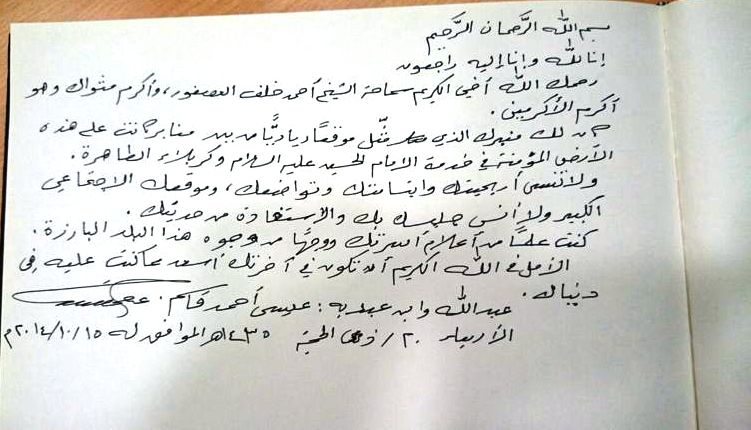 بسم الله الرَّحمان الرَّحيم
إنا لله وإنا إليه راجعون
رحمك الله أخي الكريم سماحة الشيخ أحمد خلف العصفور، وأكرم مثواك وهو
أكرم الأكرمين.
كان لك منبرك الذي مثّل موقعًا رياديًّا من بين منابر كانت على هذه
الأرض المؤمنة في خدمة الامام الحسين عليه السلام وكربلاء الطاهرة.
ولا تنسى أريحيتك وابتسامتك وتواضعك، وموقعك الاجتماعي
الكبير ولا أنسى جليسك بك والاستفادة من حديثك.
كنت علمًا من أعلام أسرتك ووجهًا من وجوه هذا البلد البارزة.
الأمل في الله الكريم أن تكون في آخرتك أسعد مما كنت عليه في
دنياك.
عبد الله وابن عبديه: عيسى أحمد قاسم.
الأربعاء ٢٠/ذي الحجة ١٤٣٥هـ الموافق له ٢٠١٤/١٠/١٥م